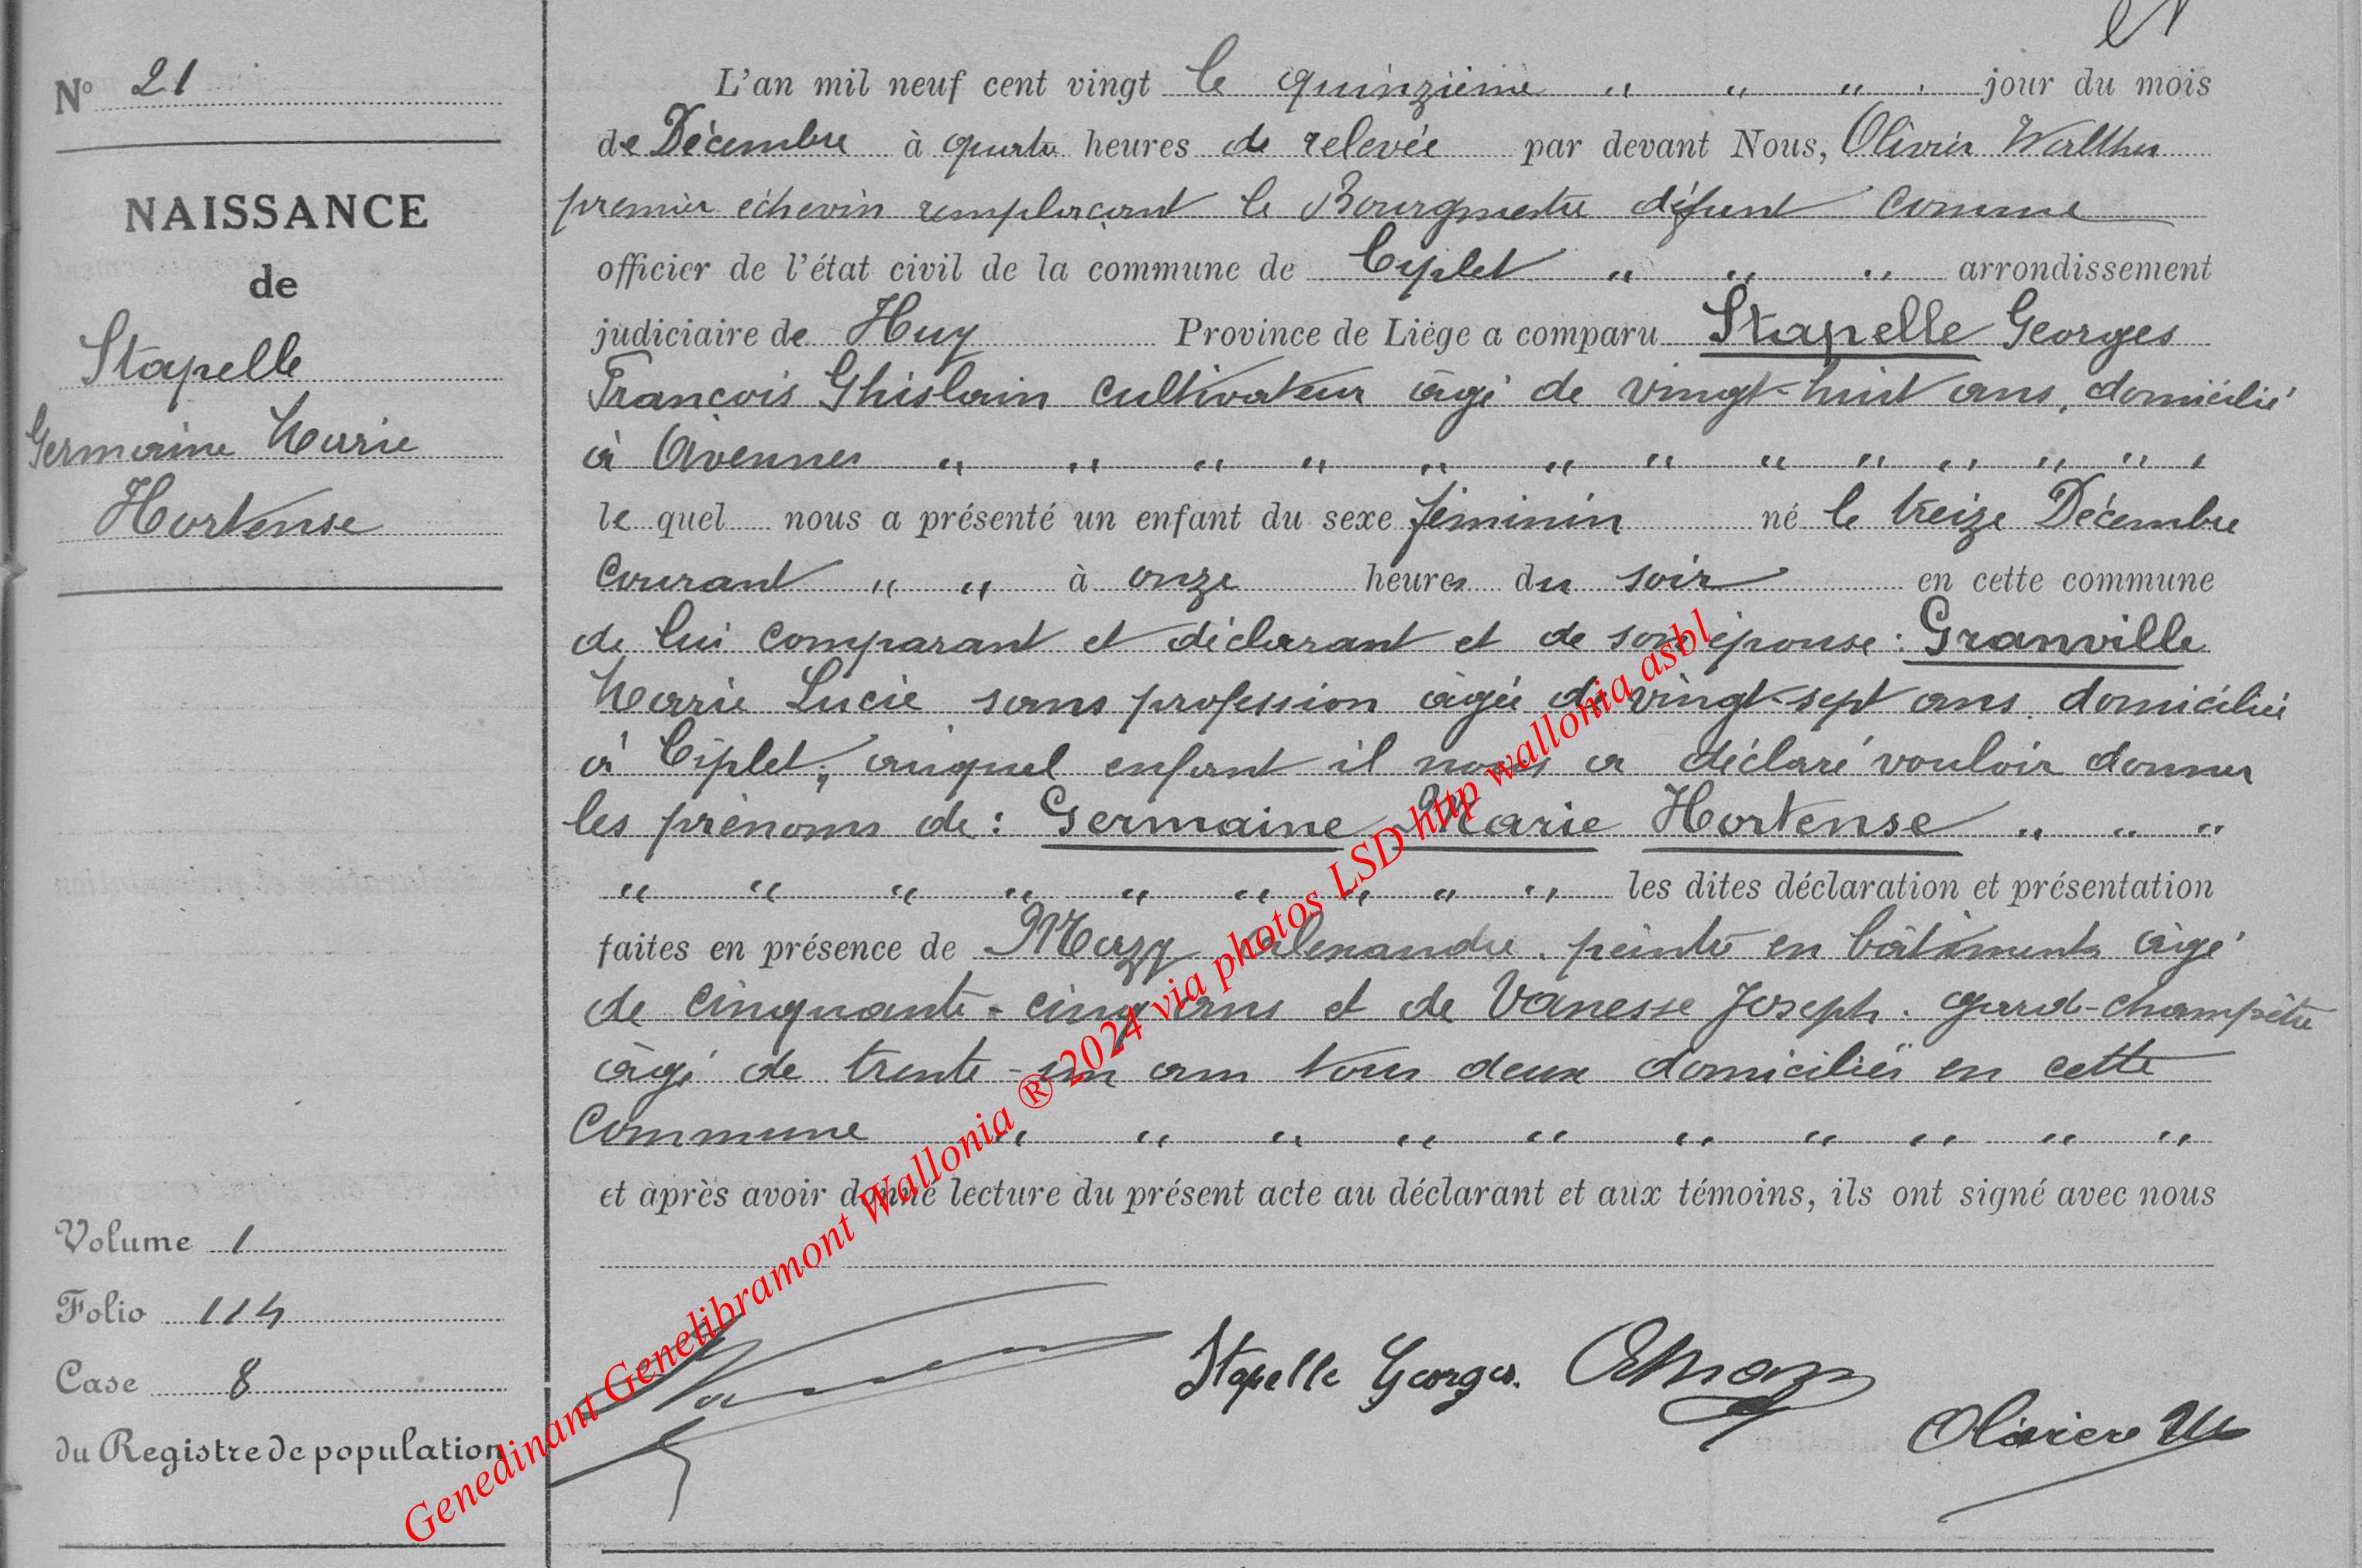 N° 21
NAISSANCE
de
Stapelle
Germaine Marie
Hortense
Volume 1
Folio 114
Case 8
du Registre de population
L'an mil neuf cent vingt le quinzième " " " jour du mois
de Décembre à quatre heures de relevée par devant Nous, Olivier Walther
premier échevin remplaçant le Bourgmestre défunt comme
officier de l'état civil de la commune de Ciplet " " " arrondissement
judiciaire de Huy Province de Liége a comparu Stapelle Georges
François Ghislain cultivateur âgé de vingt-huit ans, domicilié
à Avennes " " " " " " " " " " " "
le quel nous a présenté un enfant du sexe féminin né le treize Décembre
courant " " à onze heures du soir en cette commune
de lui comparant et déclarant et de son épouse : Granville
Marie Lucie sans profession âgée de vingt-sept ans. domiciliée
à Ciplet, auquel enfant il nous a déclaré vouloir donner
les prénoms de : Germaine Marie Hortense " " "
" " " " " " " " " les dites déclaration et présentation
faites en présence de Mazy Alexandre. peintre en bâtiments âgé
de cinquante-cinq ans et de Vanesse Joseph. gard-champêtre
âgé de trente-un ans tous deux domiciliés en cette
commune " " " " " " " " " "
et après avoir donné lecture du présent acte au déclarant et aux témoins, ils ont signé avec nous
Stapelle Georges.
Olivier W
Genedinant Genelibramont Wallonia ® 2024 via photos LSD http wallonia asbl